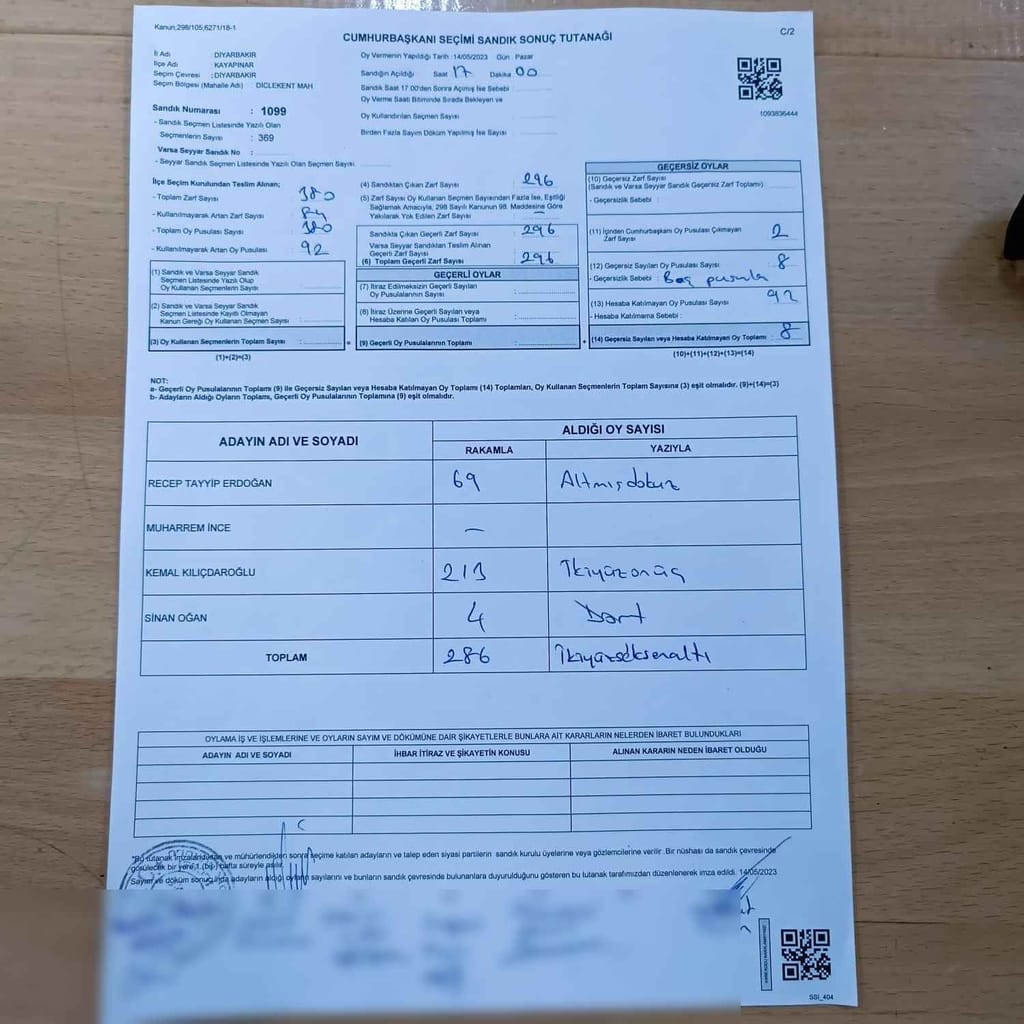 Kanun;298/105;6271/18-1
CUMHURBAŞKANI SEÇİMİ SANDIK SONUÇ TUTANAĞI
C/2
İl Adı : DİYARBAKIR
İlçe Adı : KAYAPINAR
Seçim Çevresi : DİYARBAKIR
Seçim Bölgesi (Mahalle Adı) : DİCLEKENT MAH
Sandık Numarası : 1099
- Sandık Seçmen Listesinde Yazılı Olan
Seçmenlerin Sayısı : 369
Varsa Seyyar Sandık No :
- Seyyar Sandık Seçmen Listesinde Yazılı Olan Seçmen Sayısı
Oy Vermenin Yapıldığı Tarih : 14/05/2023 Gün : Pazar
Sandığın Açıldığı Saat 17 Dakika 00
Sandık Saat 17:00'den Sonra Açımış İse Sebebi
Oy Verme Saati Bitiminde Sırada Bekleyen ve
Oy Kullandırılan Seçmen Sayısı :
Birden Fazla Sayım Döküm Yapılmış İse Sayısı :
1093836444
İlçe Seçim Kurulundan Teslim Alınan;
- Toplam Zarf Sayısı : 380
- Kullanılmayarak Artan Zarf Sayısı : 84
- Toplam Oy Pusulası Sayısı : 380
- Kullanılmayarak Artan Oy Pusulası : 92
(1) Sandık ve Varsa Seyyar Sandık
Seçmen Listesinde Yazılı Olup
Oy Kullanan Seçmenlerin Sayısı :
(2) Sandık ve Varsa Seyyar Sandık
Seçmen Listesinde Kayıtlı Olmayan
Kanun Gereği Oy Kullanan Seçmen Sayısı :
(3) Oy Kullanan Seçmenlerin Toplam Sayısı :
(1)+(2)=(3)
(4) Sandıktan Çıkan Zarf Sayısı : 296
(5) Zarf Sayısı Oy Kullanan Seçmen Sayısından Fazla İse, Eşitliği
Sağlamak Amacıyla, 298 Sayılı Kanunun 98. Maddesine Göre
Yakılarak Yok Edilen Zarf Sayısı : —
Sandıkta Çıkan Geçerli Zarf Sayısı : 296
Varsa Seyyar Sandıktan Teslim Alınan
Geçerli Zarf Sayısı :
(6) Toplam Geçerli Zarf Sayısı : 296
GEÇERLİ OYLAR
(7) İtiraz Edilmeksizin Geçerli Sayılan
Oy Pusulalarının Sayısı :
(8) İtiraz Üzerine Geçerli Sayılan veya
Hesaba Katılan Oy Pusulası Toplamı :
= (9) Geçerli Oy Pusulalarının Toplamı : +
GEÇERSİZ OYLAR
(10) Geçersiz Zarf Sayısı
(Sandık ve Varsa Seyyar Sandık Geçersiz Zarf Toplamı)
- Geçersizlik Sebebi :
(11) İçinden Cumhurbaşkanı Oy Pusulası Çıkmayan
Zarf Sayısı : 2
(12) Geçersiz Sayılan Oy Pusulası Sayısı : 8
- Geçersizlik Sebebi : Boş pusula
(13) Hesaba Katılmayan Oy Pusulası Sayısı : 92
- Hesaba Katılmama Sebebi :
(14) Geçersiz Sayılan veya Hesaba Katılmayan Oy Toplamı : 8
(10)+(11)+(12)+(13)=(14)
NOT:
a- Geçerli Oy Pusulalarının Toplamı (9) ile Geçersiz Sayılan veya Hesaba Katılmayan Oy Toplamı (14) Toplamları, Oy Kullanan Seçmenlerin Toplam Sayısına (3) eşit olmalıdır. (9)+(14)=(3)
b- Adayların Aldığı Oyların Toplamı, Geçerli Oy Pusulalarının Toplamına (9) eşit olmalıdır.
ADAYIN ADI VE SOYADI ALDIĞI OY SAYISI
RAKAMLA YAZIYLA
RECEP TAYYİP ERDOĞAN 69 Altmışdokuz
MUHARREM İNCE —
KEMAL KILIÇDAROĞLU 213 İkiyüzonüç
SİNAN OĞAN 4 Dört
TOPLAM 286 İkiyüzseksenaltı
OYLAMA İŞ VE İŞLEMLERİNE VE OYLARIN SAYIM VE DÖKÜMÜNE DAİR ŞİKAYETLERLE BUNLARA AİT KARARLARIN NELERDEN İBARET BULUNDUKLARI
ADAYIN ADI VE SOYADI İHBAR İTİRAZ VE ŞİKAYETİN KONUSU ALINAN KARARIN NEDEN İBARET OLDUĞU
"Bu tutanak imzalandıktan ve mühürlendikten sonra seçime katılan adayların ve talep eden siyasi partilerin sandık kurulu üyelerine veya gözlemcilerine verilir. Bir nüshası da sandık çevresinde
görülecek bir yere 1 (bir) hafta süreyle asılır.
Sayım ve döküm sonucunda adayların aldığı oyların sayılarını ve bunların sandık çevresinde bulunanlara duyurulduğunu gösteren bu tutanak tarafımızdan düzenlenerek imza edildi. 14/05/2023
SSI_404